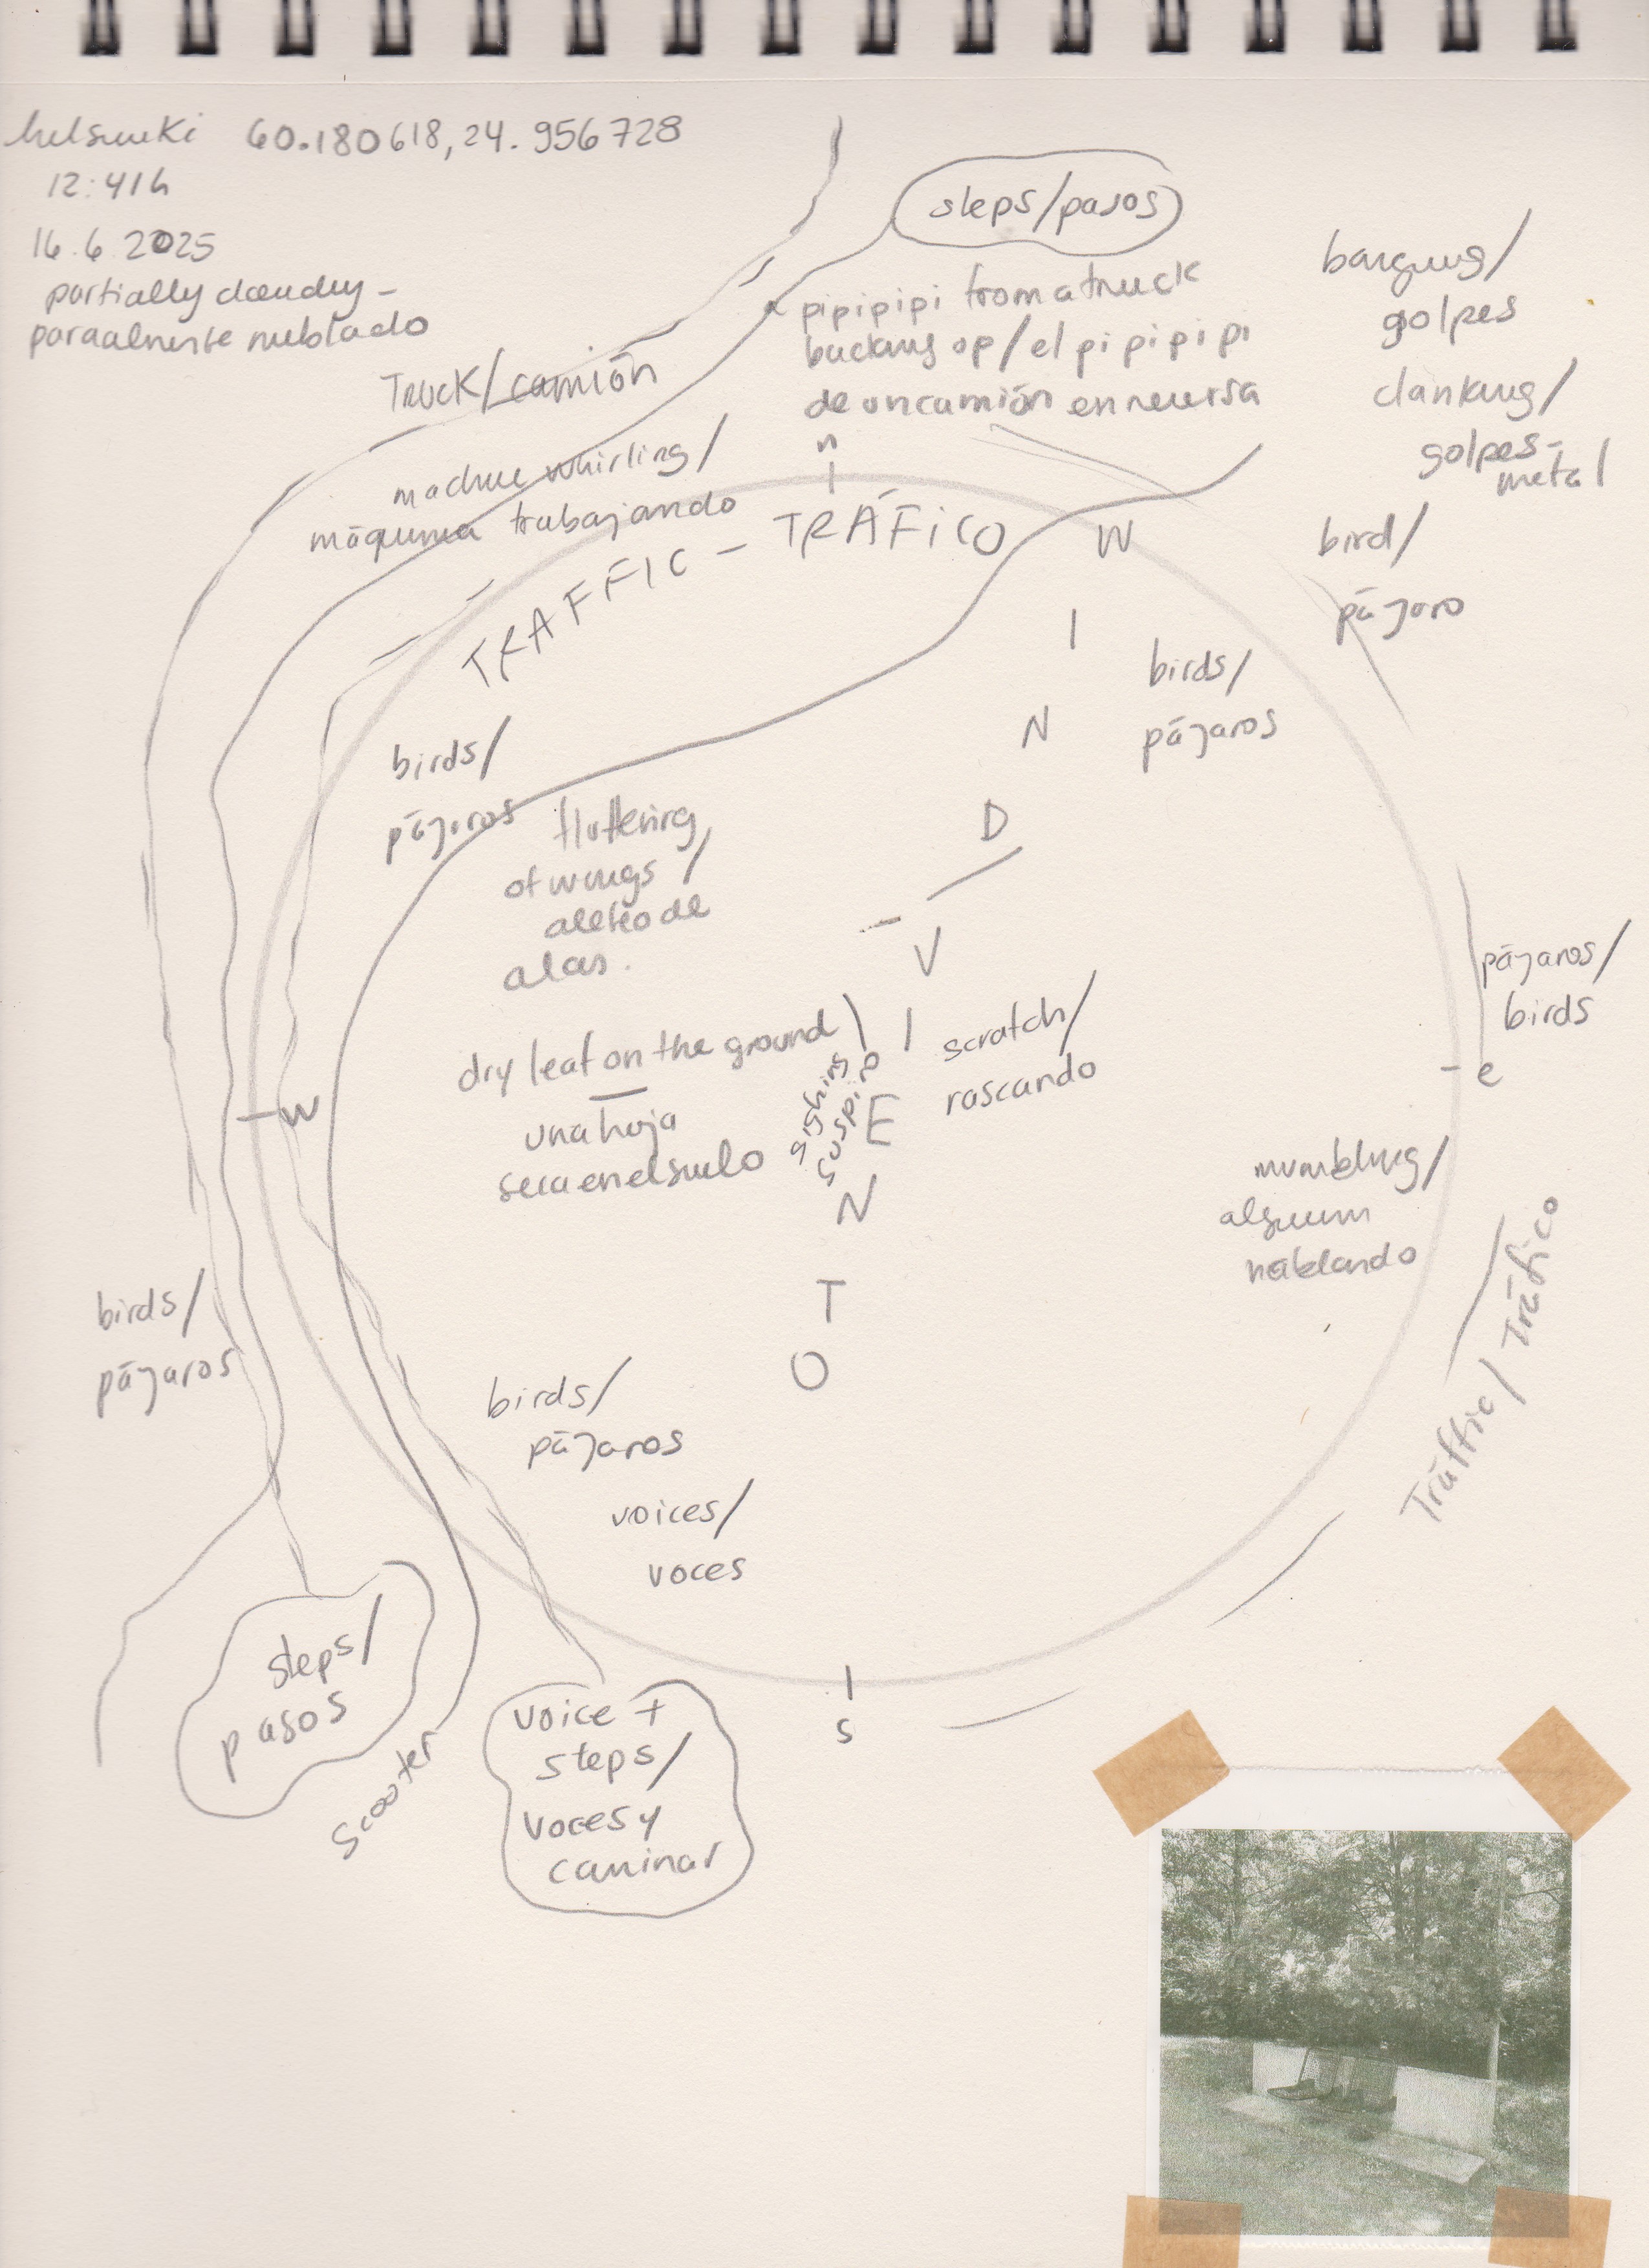 helsinki 60.180618, 24.956728
12:41h
16.6.2025
partially cloudy -
parcialmente nublado
steps/pasos
pipipipi from a truck
backing up/el pipipipi
de un camión en reversa
banging/
golpes
clanking/
golpes-
metal
TRUCK/camión
machine whirling/
máquina trabajando
n
TRAFFIC - TRÁFICO
WIND/
-VIENTO
bird/
pájaro
birds/
pájaros
birds/
pájaros
fluttering
of wings/
aleteo de
alas.
pájaros/
birds
dry leaf on the ground/
una hoja
seca en el suelo
sighing
suspiro
scratch/
rascando
- e
- w
mumbling/
alguien
hablando
Traffic/Tráfico
birds/
pájaros
birds/
pájaros
voices/
voces
steps/
pasos
scooter
voice +
steps/
voces y
caminar
s